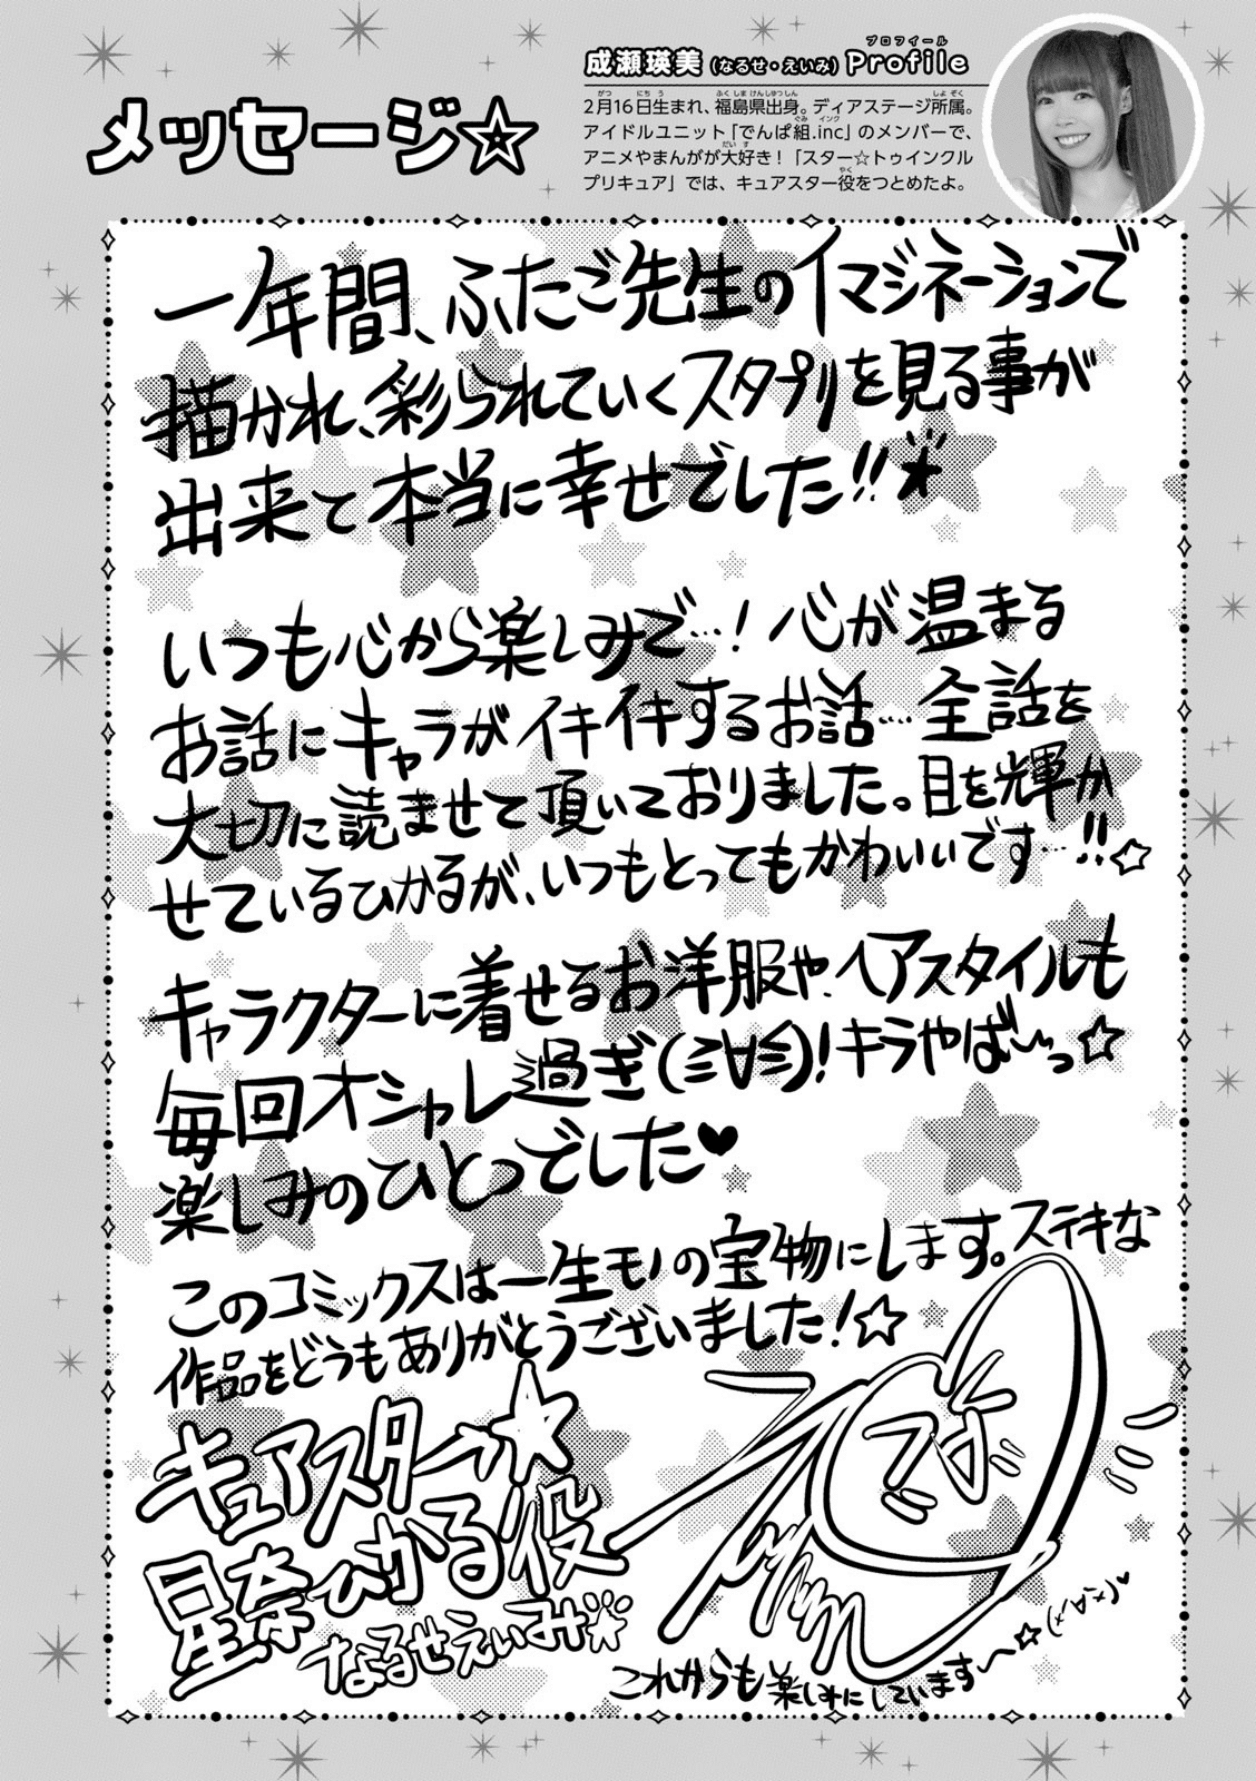 メッセージ☆
成瀬瑛美(なるせ・えいみ) Profile
プロフィール
2月16日生まれ、福島県出身。ディアステージ所属。
アイドルユニット「でんぱ組.inc」のメンバーで、
アニメやまんがが大好き!「スター☆トゥインクル
プリキュア」では、キュアスター役をつとめたよ。
一年間、ふたご先生のイマジネーションで
描かれ、彩られていくスタプリを見る事が
出来て本当に幸せでした!!★
いつも心から楽しみで…!心が温まる
お話にキャラがイキイキするお話…全話を
大切に読ませて頂いておりました。目を輝か
せているひかるが、いつもとってもかわいいです…!!☆
キャラクターに着せるお洋服や、ヘアスタイルも
毎回オシャレ過ぎ(ミ∀ミ)!キラやば〜っ☆
楽しみのひとつでした♥
このコミックスは一生モノの宝物にします。ステキな
作品をどうもありがとうございました!☆
キュアスター★
星奈ひかる役
なるせえいみ
これからも楽しみにしています〜☆